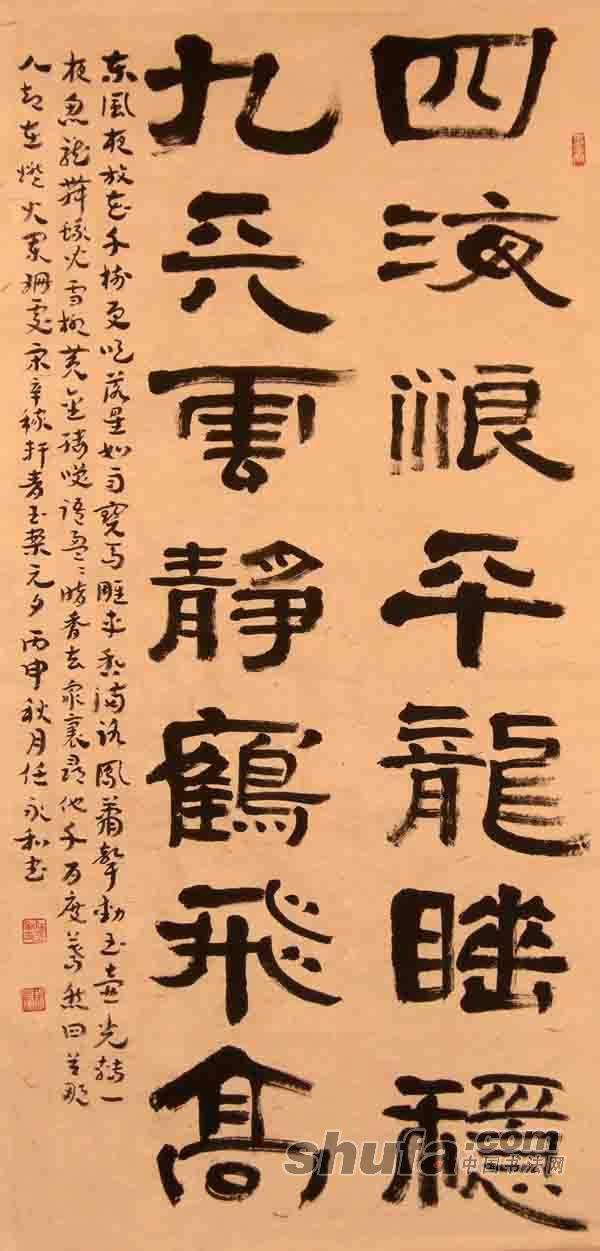 四海浪平龍睡穩
九天雲靜鶴飛高
東風夜放花千樹更吹落星如雨寶馬雕車香滿路鳳簫聲動玉壺光轉一
夜魚龍舞蛾兒雪柳黃金縷笑語盈〻暗香去眾裏尋他千百度驀然回首那
人卻在燈火闌珊處宋辛稼軒青玉案元夕丙申秋月任永和書
shufa.com
中国书法网